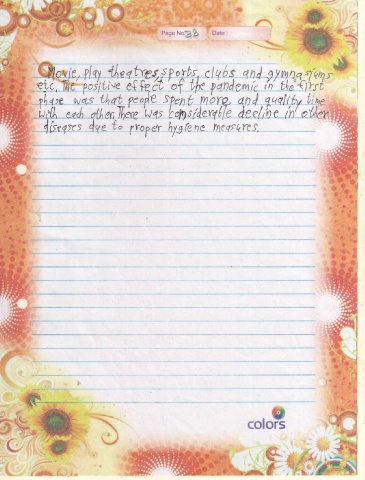 Page No. 33 Date:
Movie, play theatres, sports, clubs and gymnasiums
etc. The positive effect of the pandemic in the first
phase was that people spent more and quality time
with each other. There was considerable decline in other
diseases due to proper hygiene measures.
colors